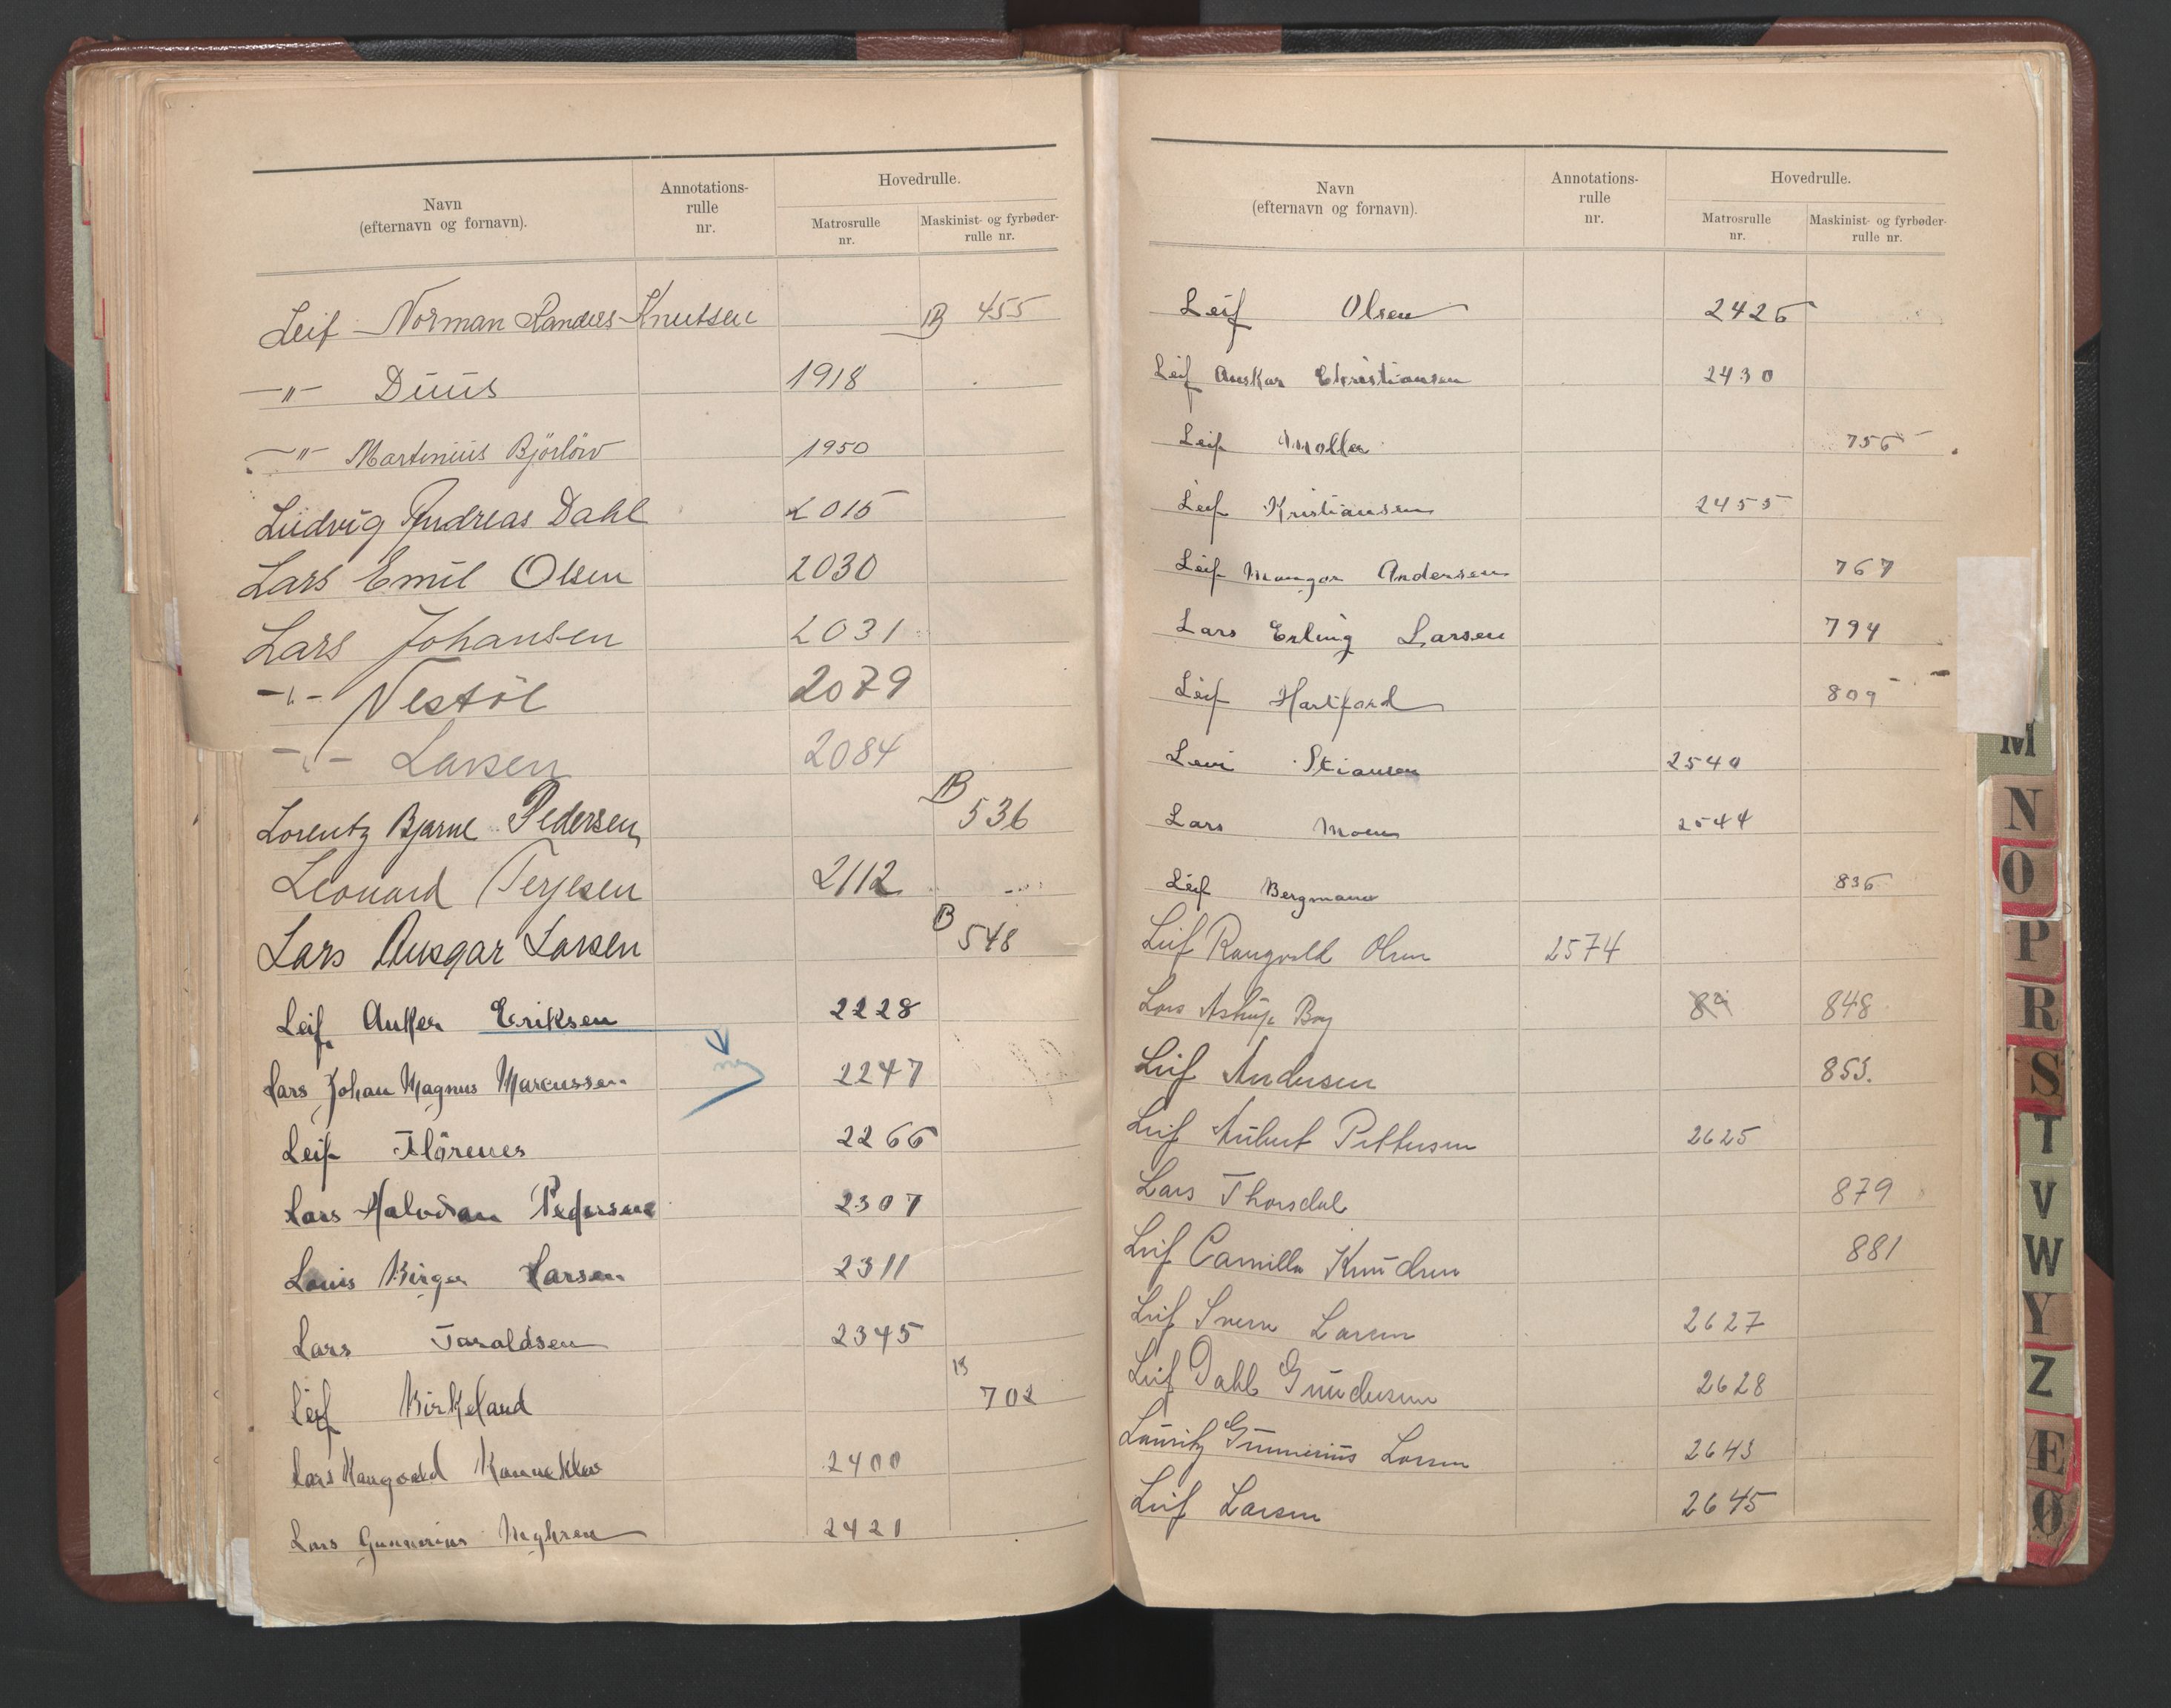 Navn
(efternavn og fornavn).
Annotations-
rulle
nr.
Hovedrulle.
Matrosrulle
nr.
Maskinist- og fyrbøder-
rulle nr.
Leif Norman Randres Knutsen B 455
—"— Duus 1918
—"— Martinius Björlöw 1950
Ludvig Andreas Dahl 2015
Lars Emil Olsen 2030
Lars Johansen 2031
-"- Nestöl 2079
-"- Larsen 2084
Lorentz Bjarne Pedersen B 536
Leonard Terjesen 2112
Lars Ansgar Larsen B 548
Leif Anker Eriksen 2228
Lars Johan Magnus Marcussen 2247
Leif Flörenes 2266
Lars Halvdan Pedersen 2307
Louis Birger Larsen 2311
Lars Taraldsen 2345
Leif Birkeland B 702
Lars Rangvald 2400
Lars Gunnerius 2421
Navn
(efternavn og fornavn).
Annotations-
rulle
nr.
Hovedrulle.
Matrosrulle
nr.
Maskinist- og fyrbøder-
rulle nr.
Leif Olsen 2426
Leif Anskar Christiansen 2430
Leif Moller 756
Leif Kristiansen 2455
Leif Mangor Andersen 767
Lars Erling Larsen 794
Leif Hartford 809
Levi Stiansen 2540
Lars Moen 2544
Leif Bergmann 836
Leif Rangvald Olsen 2574
Lars Astrup Boy 848
Leif Andersen 853.
Leif Aubert Pettersen 2625
Lars Thorsdal 879
Leif Camillo Knudsen 881
Leif Sverre Larsen 2627
Leif Dahl Gundersen 2628
Lauritz Gunnerius Larsen 2643
Leif Larsen 2645
M
N
O
P
R
S
T
V
W
Y
Z
Æ
Ø